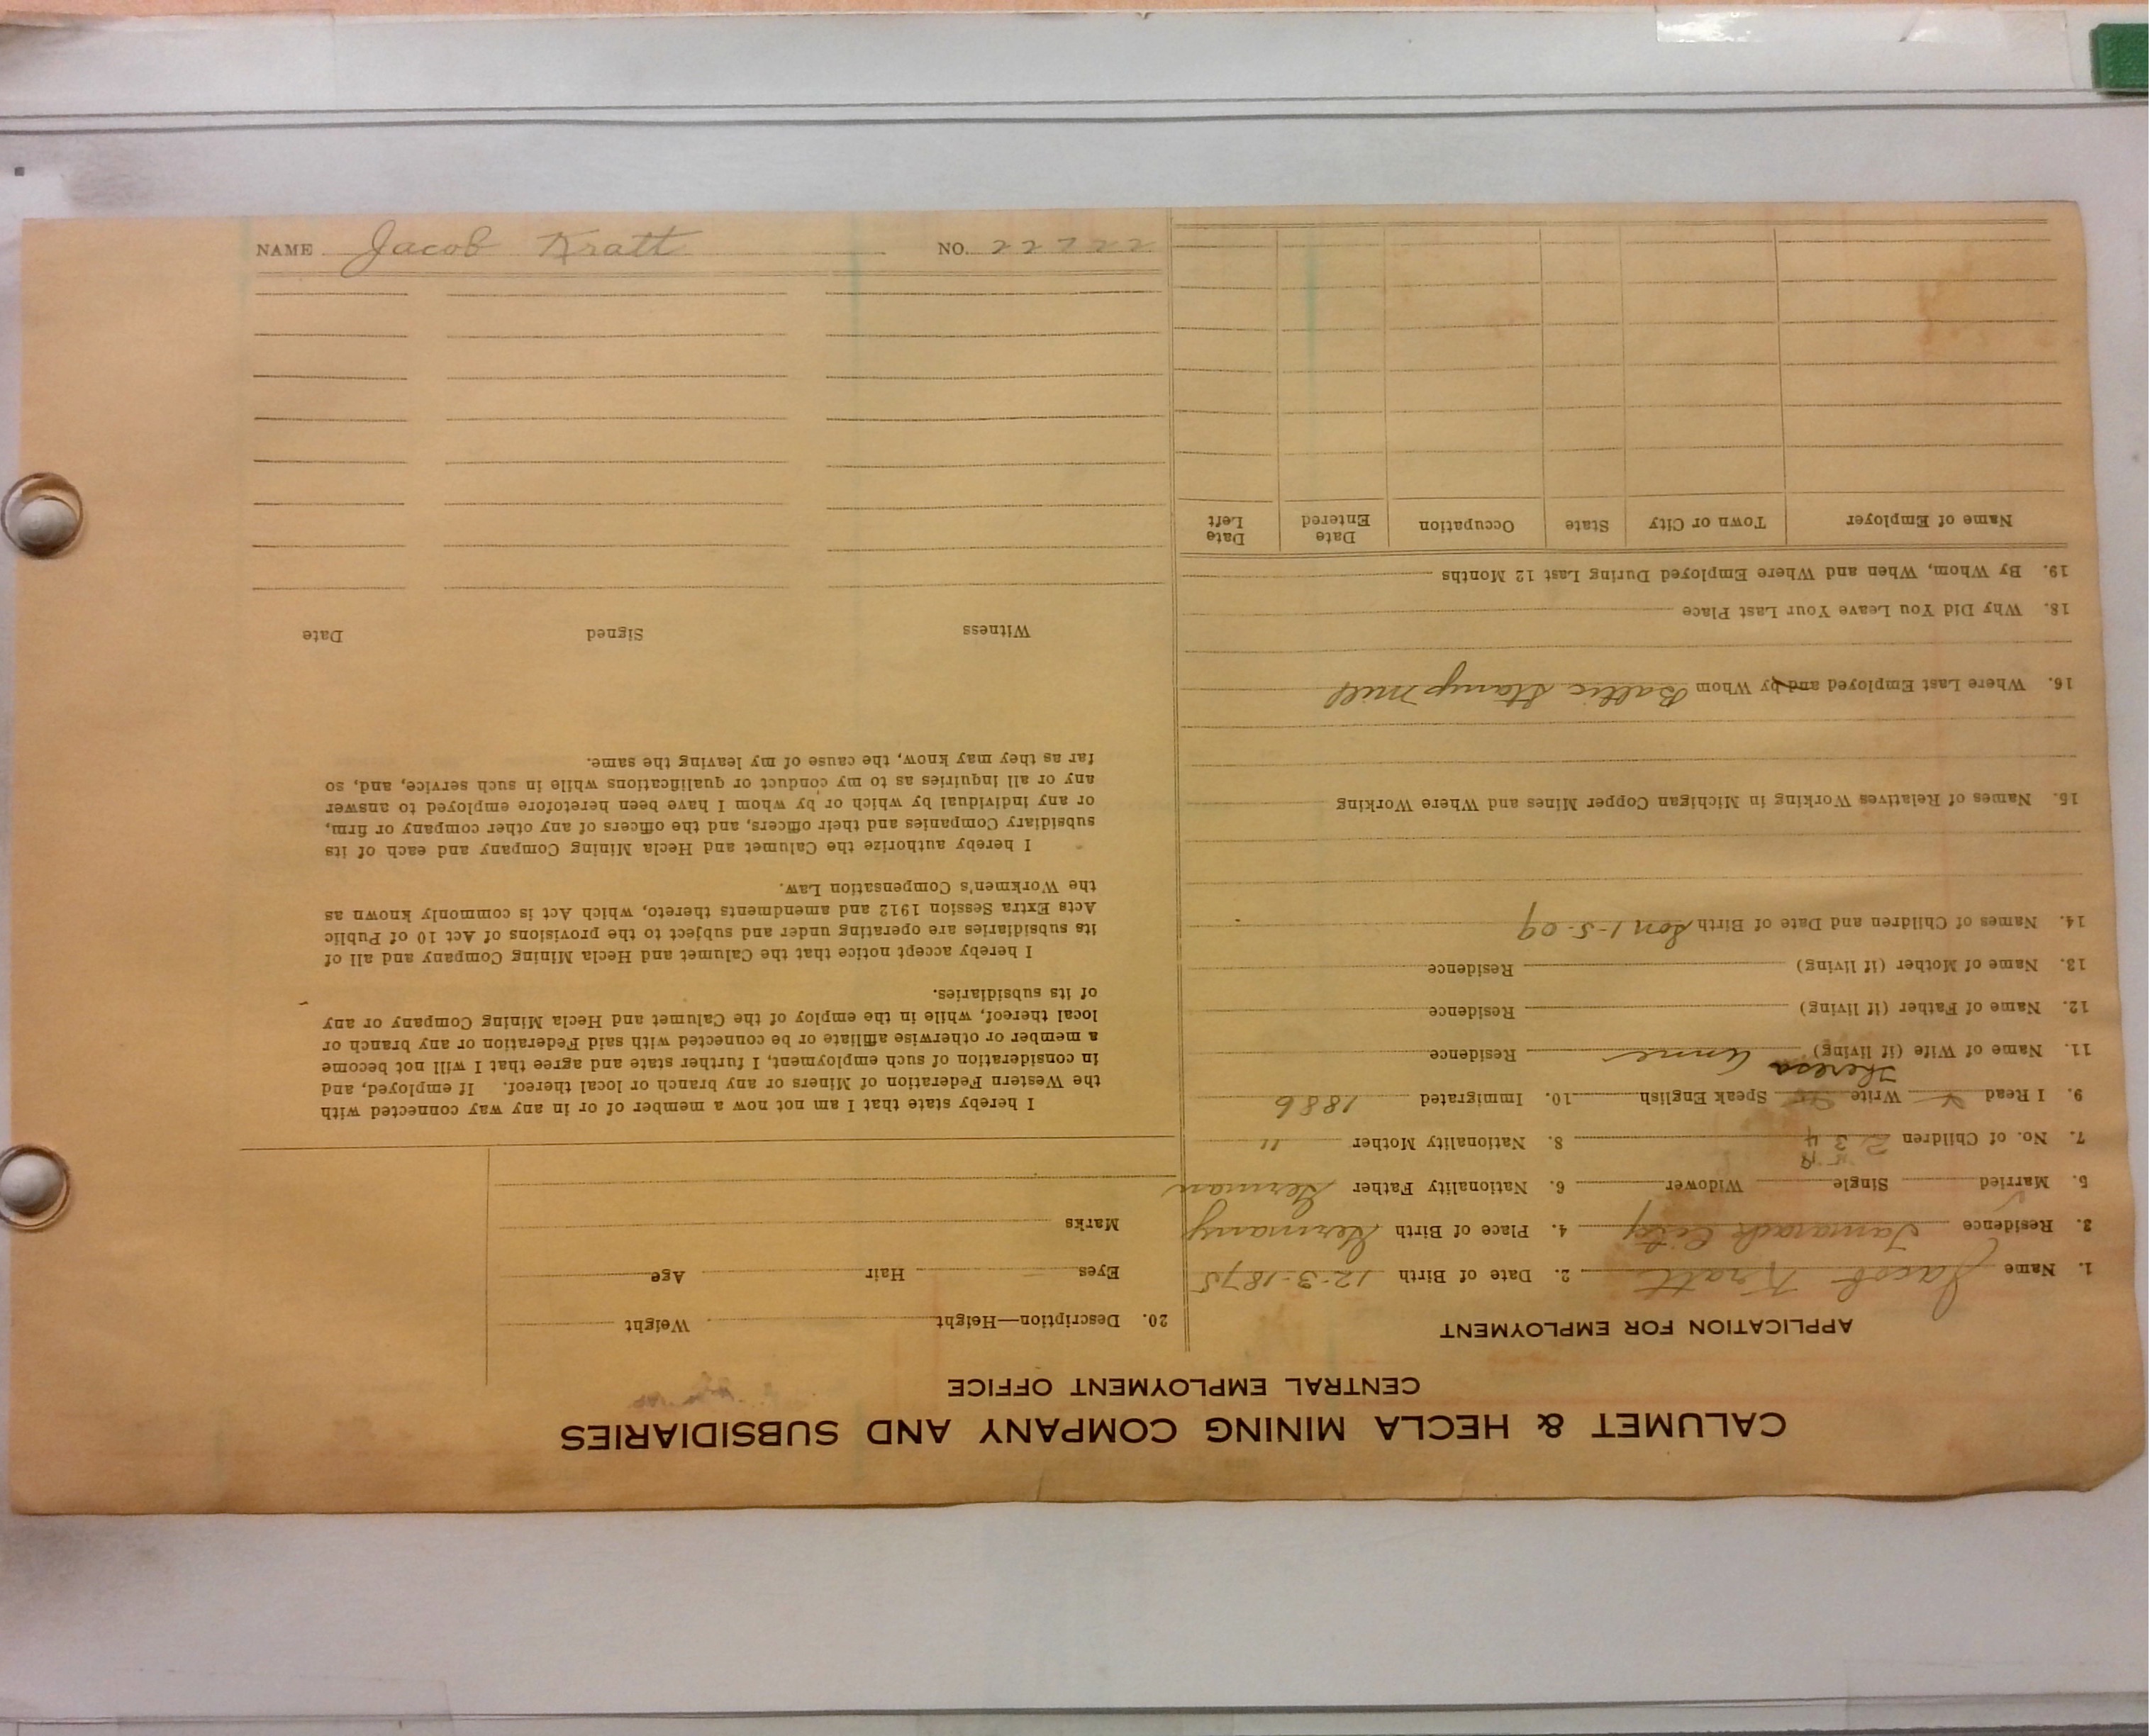 CALUMET & HECLA MINING COMPANY AND SUBSIDIARIES
CENTRAL EMPLOYMENT OFFICE
APPLICATION FOR EMPLOYMENT
1. Name Jacob Kratt 2. Date of Birth 12-3-1875
3. Residence Tamarack City 4. Place of Birth Germany
5. Married Single Widower 6. Nationality Father German
7. No. of Children 2 3 4 8. Nationality Mother "
9. I Read Write Speak English 10. Immigrated 1886
Theresa
11. Name of Wife (if living) Anne Residence
12. Name of Father (if living) Residence
13. Name of Mother (if living) Residence
14. Names of Children and Date of Birth Son 1-5-09
15. Names of Relatives Working in Michigan Copper Mines and Where Working
16. Where Last Employed and by Whom Baltic Stamp Mill
18. Why Did You Leave Your Last Place
19. By Whom, When and Where Employed During Last 12 Months
Name of Employer Town or City State Occupation Date Entered Date Left
20. Description—Height Weight
Eyes Hair Age
Marks
I hereby state that I am not now a member of or in any way connected with
the Western Federation of Miners or any branch or local thereof. If employed, and
in consideration of such employment, I further state and agree that I will not become
a member or otherwise affiliate or be connected with said Federation or any branch or
local thereof, while in the employ of the Calumet and Hecla Mining Company or any
of its subsidiaries.
I hereby accept notice that the Calumet and Hecla Mining Company and all of
its subsidiaries are operating under and subject to the provisions of Act 10 of Public
Acts Extra Session 1912 and amendments thereto, which Act is commonly known as
the Workmen's Compensation Law.
I hereby authorize the Calumet and Hecla Mining Company and each of its
subsidiary Companies and their officers, and the officers of any other company or firm,
or any individual by which or by whom I have been heretofore employed to answer
any or all inquiries as to my conduct or qualifications while in such service, and, so
far as they may know, the cause of my leaving the same.
Witness Signed Date
NAME Jacob Kratt NO. 22222